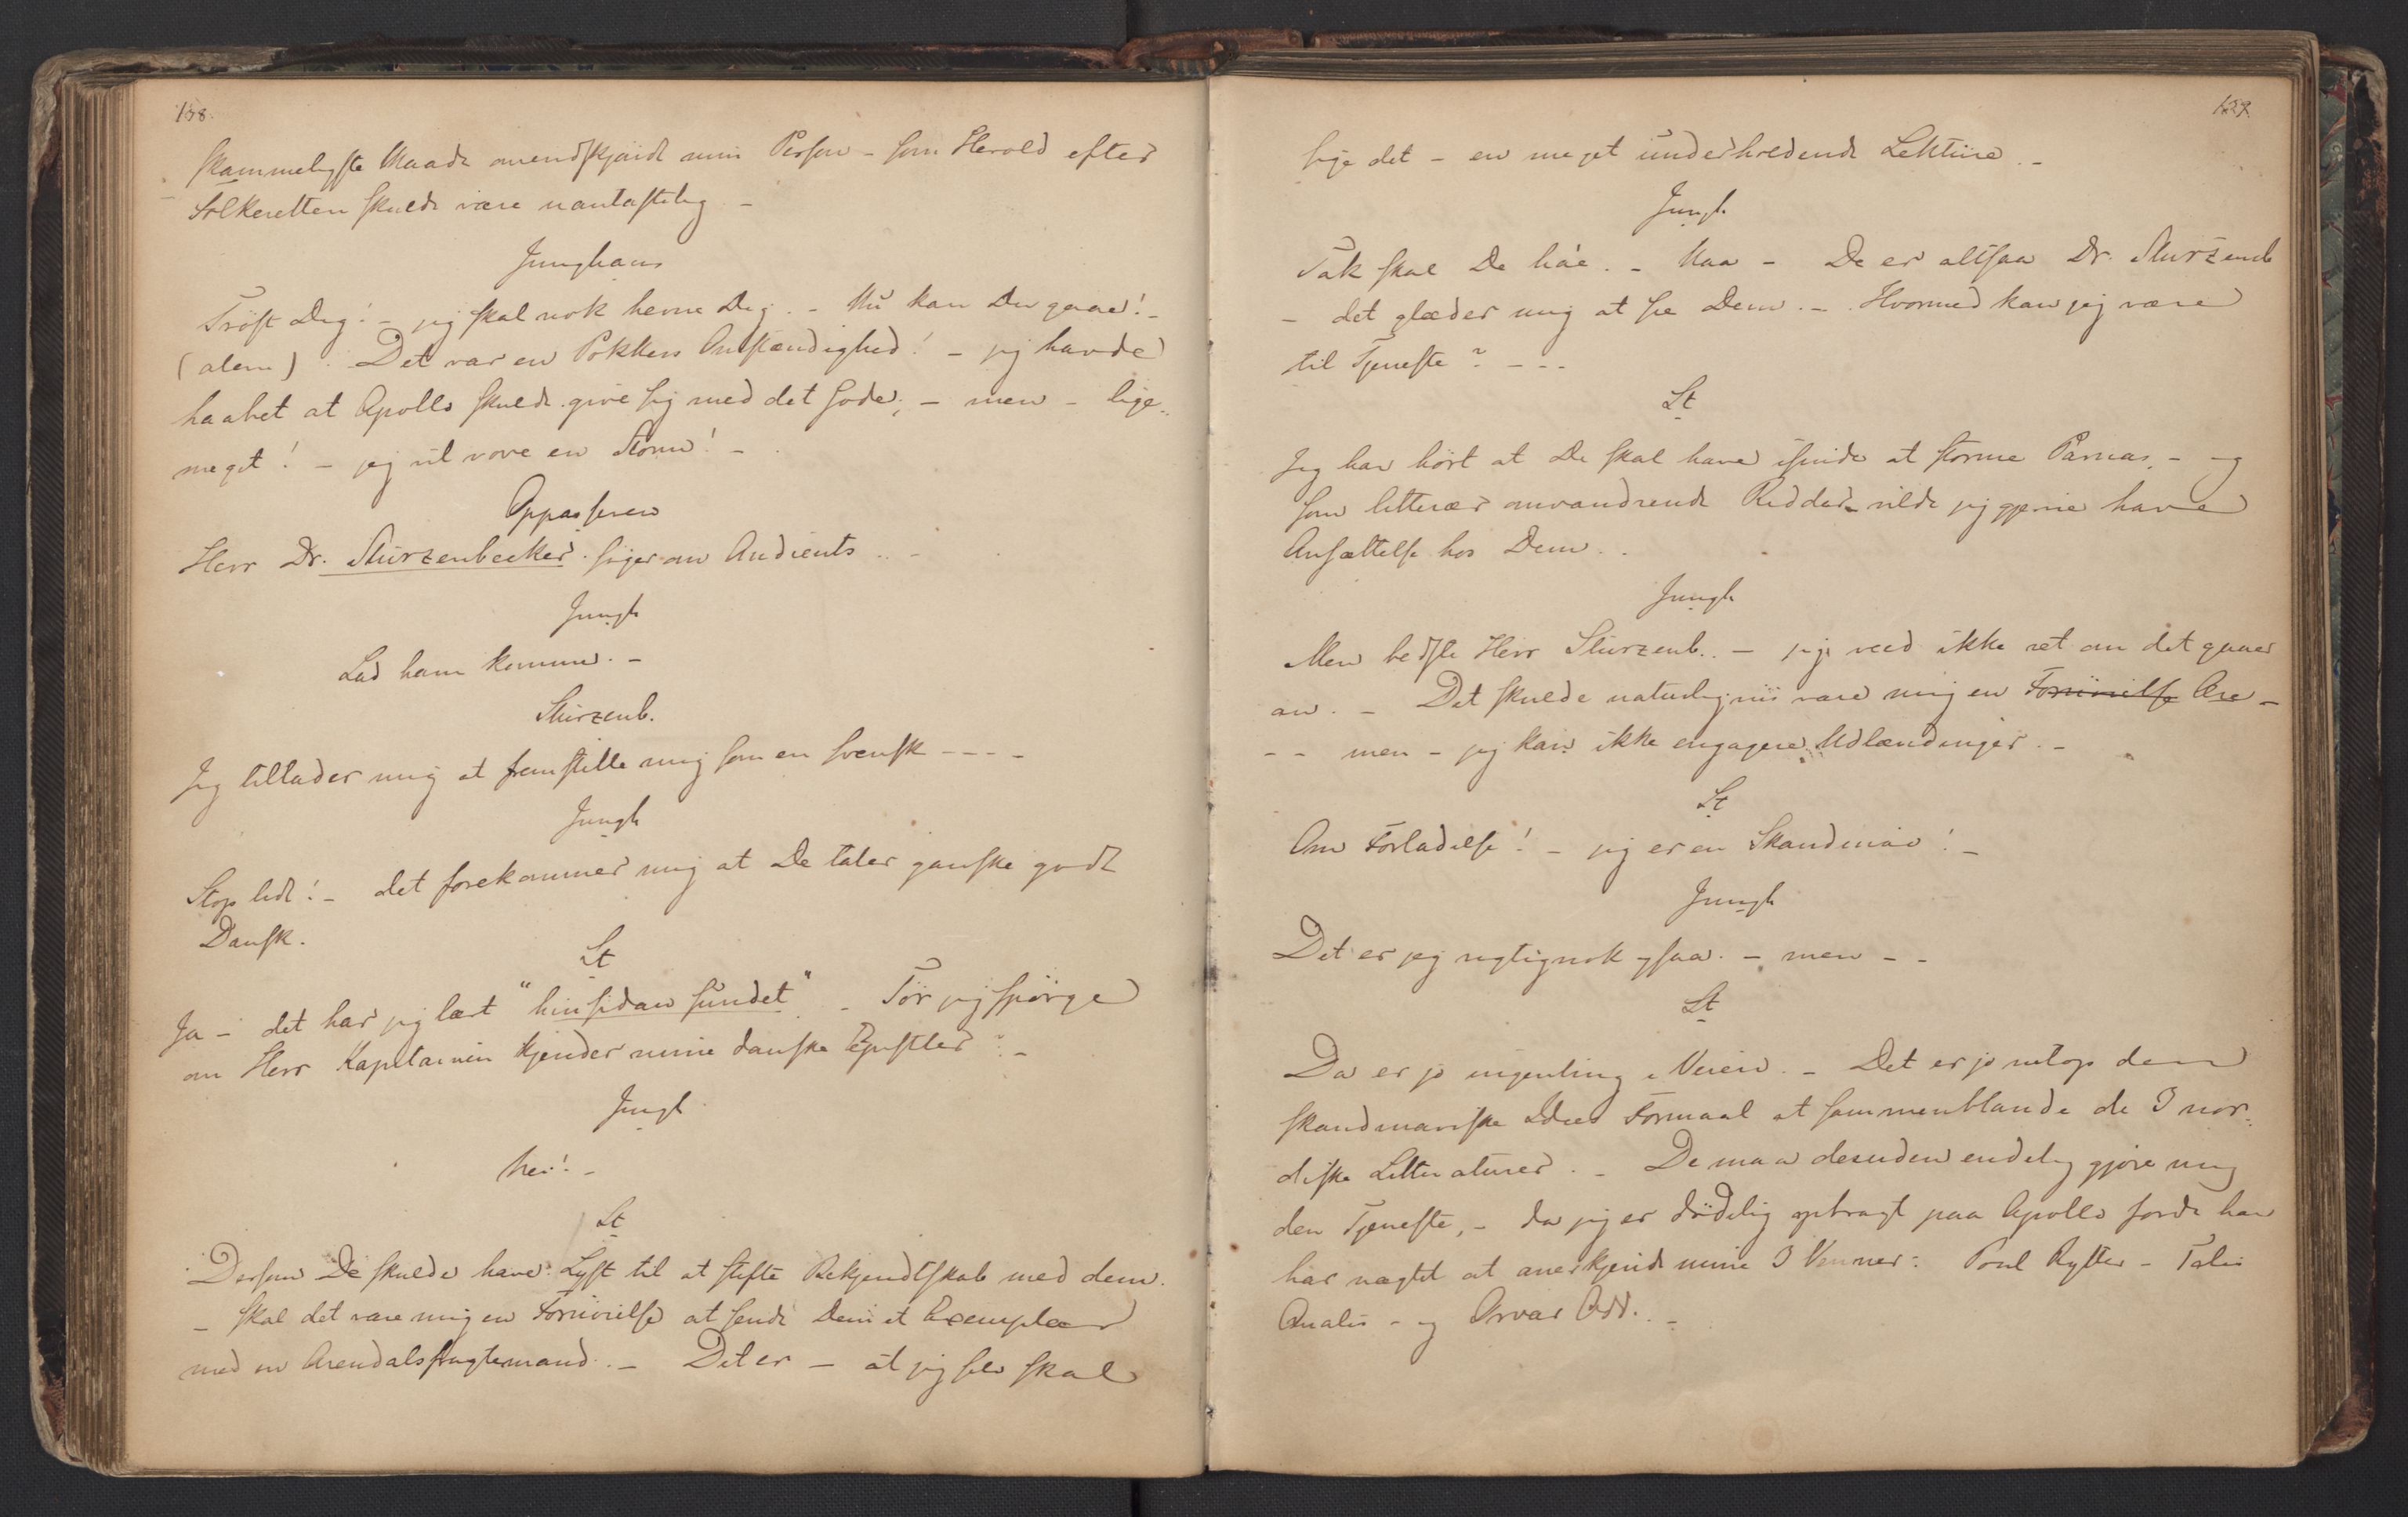 158.
skammeligste Maade mendskjændt min Person - som Herold efter
Folkeretten skulde være uantastelig. -
Junghans
Trøst Dig! - jeg skal nok hevne Dig. - Nu kan Du gaae! -
(alene). Det var en Pokkers Omstændighed! - jeg havde
haabet at Apollo skulde give sig med det Gode; - men - lige-
meget! - jeg vil vove en Storm! -
Oppasseren
Herr Dr. Sturzenbecker siger om Audients. -
Jungh
Lad ham komme. -
Sturzenb.
Jeg tillader mig at fremstille mig som en Svensk ----
Jungh
Stop lidt! - det forekommer mig at De taler ganske godt
Dansk.
St
Ja - det har jeg lært "hinsidan sundet". - Tør jeg spørge
om Herr Kapitainen kjender mine danske Epistler? -
Jungh
Nei! -
St
Dersom De skulde have Lyst til at stifte Bekjendtskab med dem.
- skal det være mig en Fornöielse at sende Dem et Exemplar
med en Arendalsfragtemand. - Det er - at jeg selv skal
159
sige det - en meget underholdende Lektüre. -
Jungh
Tak skal De ha'e. - Naa - De er altsaa Dr. Sturzenb
- det glæder mig at see Dem. - Hvormed kan jeg være
til Tjeneste? ---
St
Jeg har hört at De skal have isinde at storme Parnas, - og
som litterær omvandrende Ridder vilde jeg gjerne have
Ansættelse hos Dem.
Jungh
Men bedste Herr Sturzenb. - jeg veed ikke ret om det gaaer
an. - Det skulde naturligviis være mig en Fornöielse Ære -
-- men - jeg kan ikke engagere Udlændinger. -
St
Om Forladelse! - jeg er en Skandinav! -
Jungh
Det er jeg rigtignok ogsaa. - men --
St
Da er jo ingenting i Veien. - Det er jo netop den
skandinaviske Idees Formaal at sammenblande de 3 nor-
diske Litteraturer. - De maa desuden endelig gjöre mig
den Tjeneste, - da jeg er dödelig opbragt paa Apollo fordi han
har nægtet at anerkjende mine 3 Venner: Poul Rytter - Talis
Qualis - og Orvar Odd. -